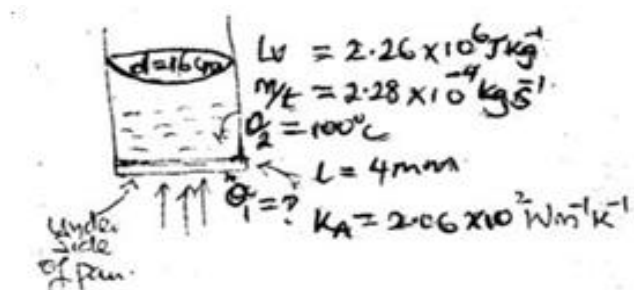 d=16cm
Lv = 2.26×10⁶Jkg⁻¹
m/t = 2.28×10⁻⁴kgs⁻¹
θ₂ = 100°C
L = 4mm
θ₁ = ?
K_A = 2.06×10²Wm⁻¹K⁻¹
Under
side
of pan.